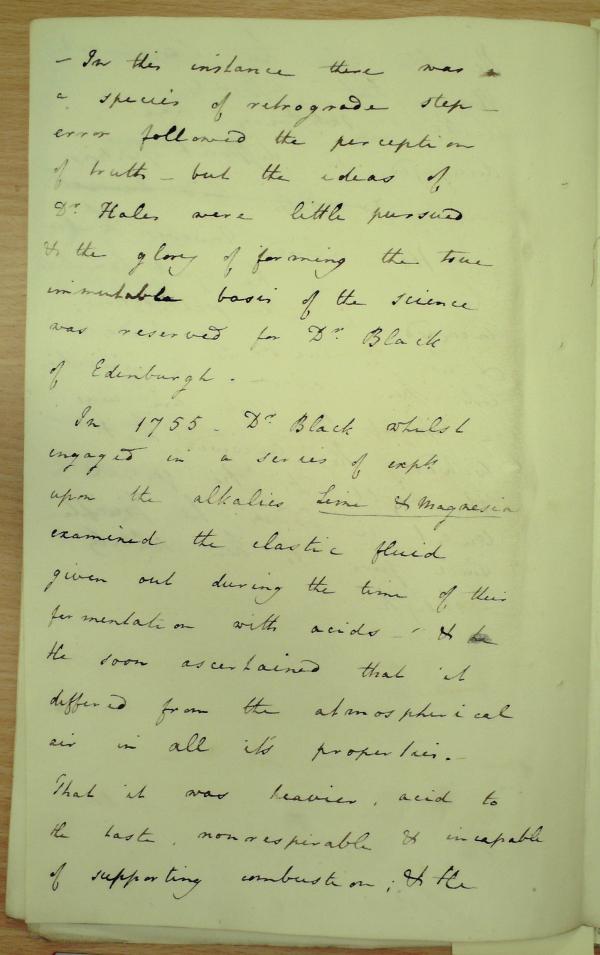 – In this instance there was
a species of retrograde step –
error followed the perception
of truth – but the ideas of
Dr. Hales were little pursued
& the glory of forming the true
immutable basis of the science
was reserved for Dr. Black
of Edinburgh. –
In 1755 – Dr Black whilst
engaged in a series of expts
upon the alkalies Lime & Magnesia
examined the elastic fluid
given out during the time of their
fermentation with acids – &
He soon ascertained that it
differed from the atmospherical
air in all its properties. –
That it was heavier, acid to
the taste, nonrespirable & incapable
of supporting combustion; & He